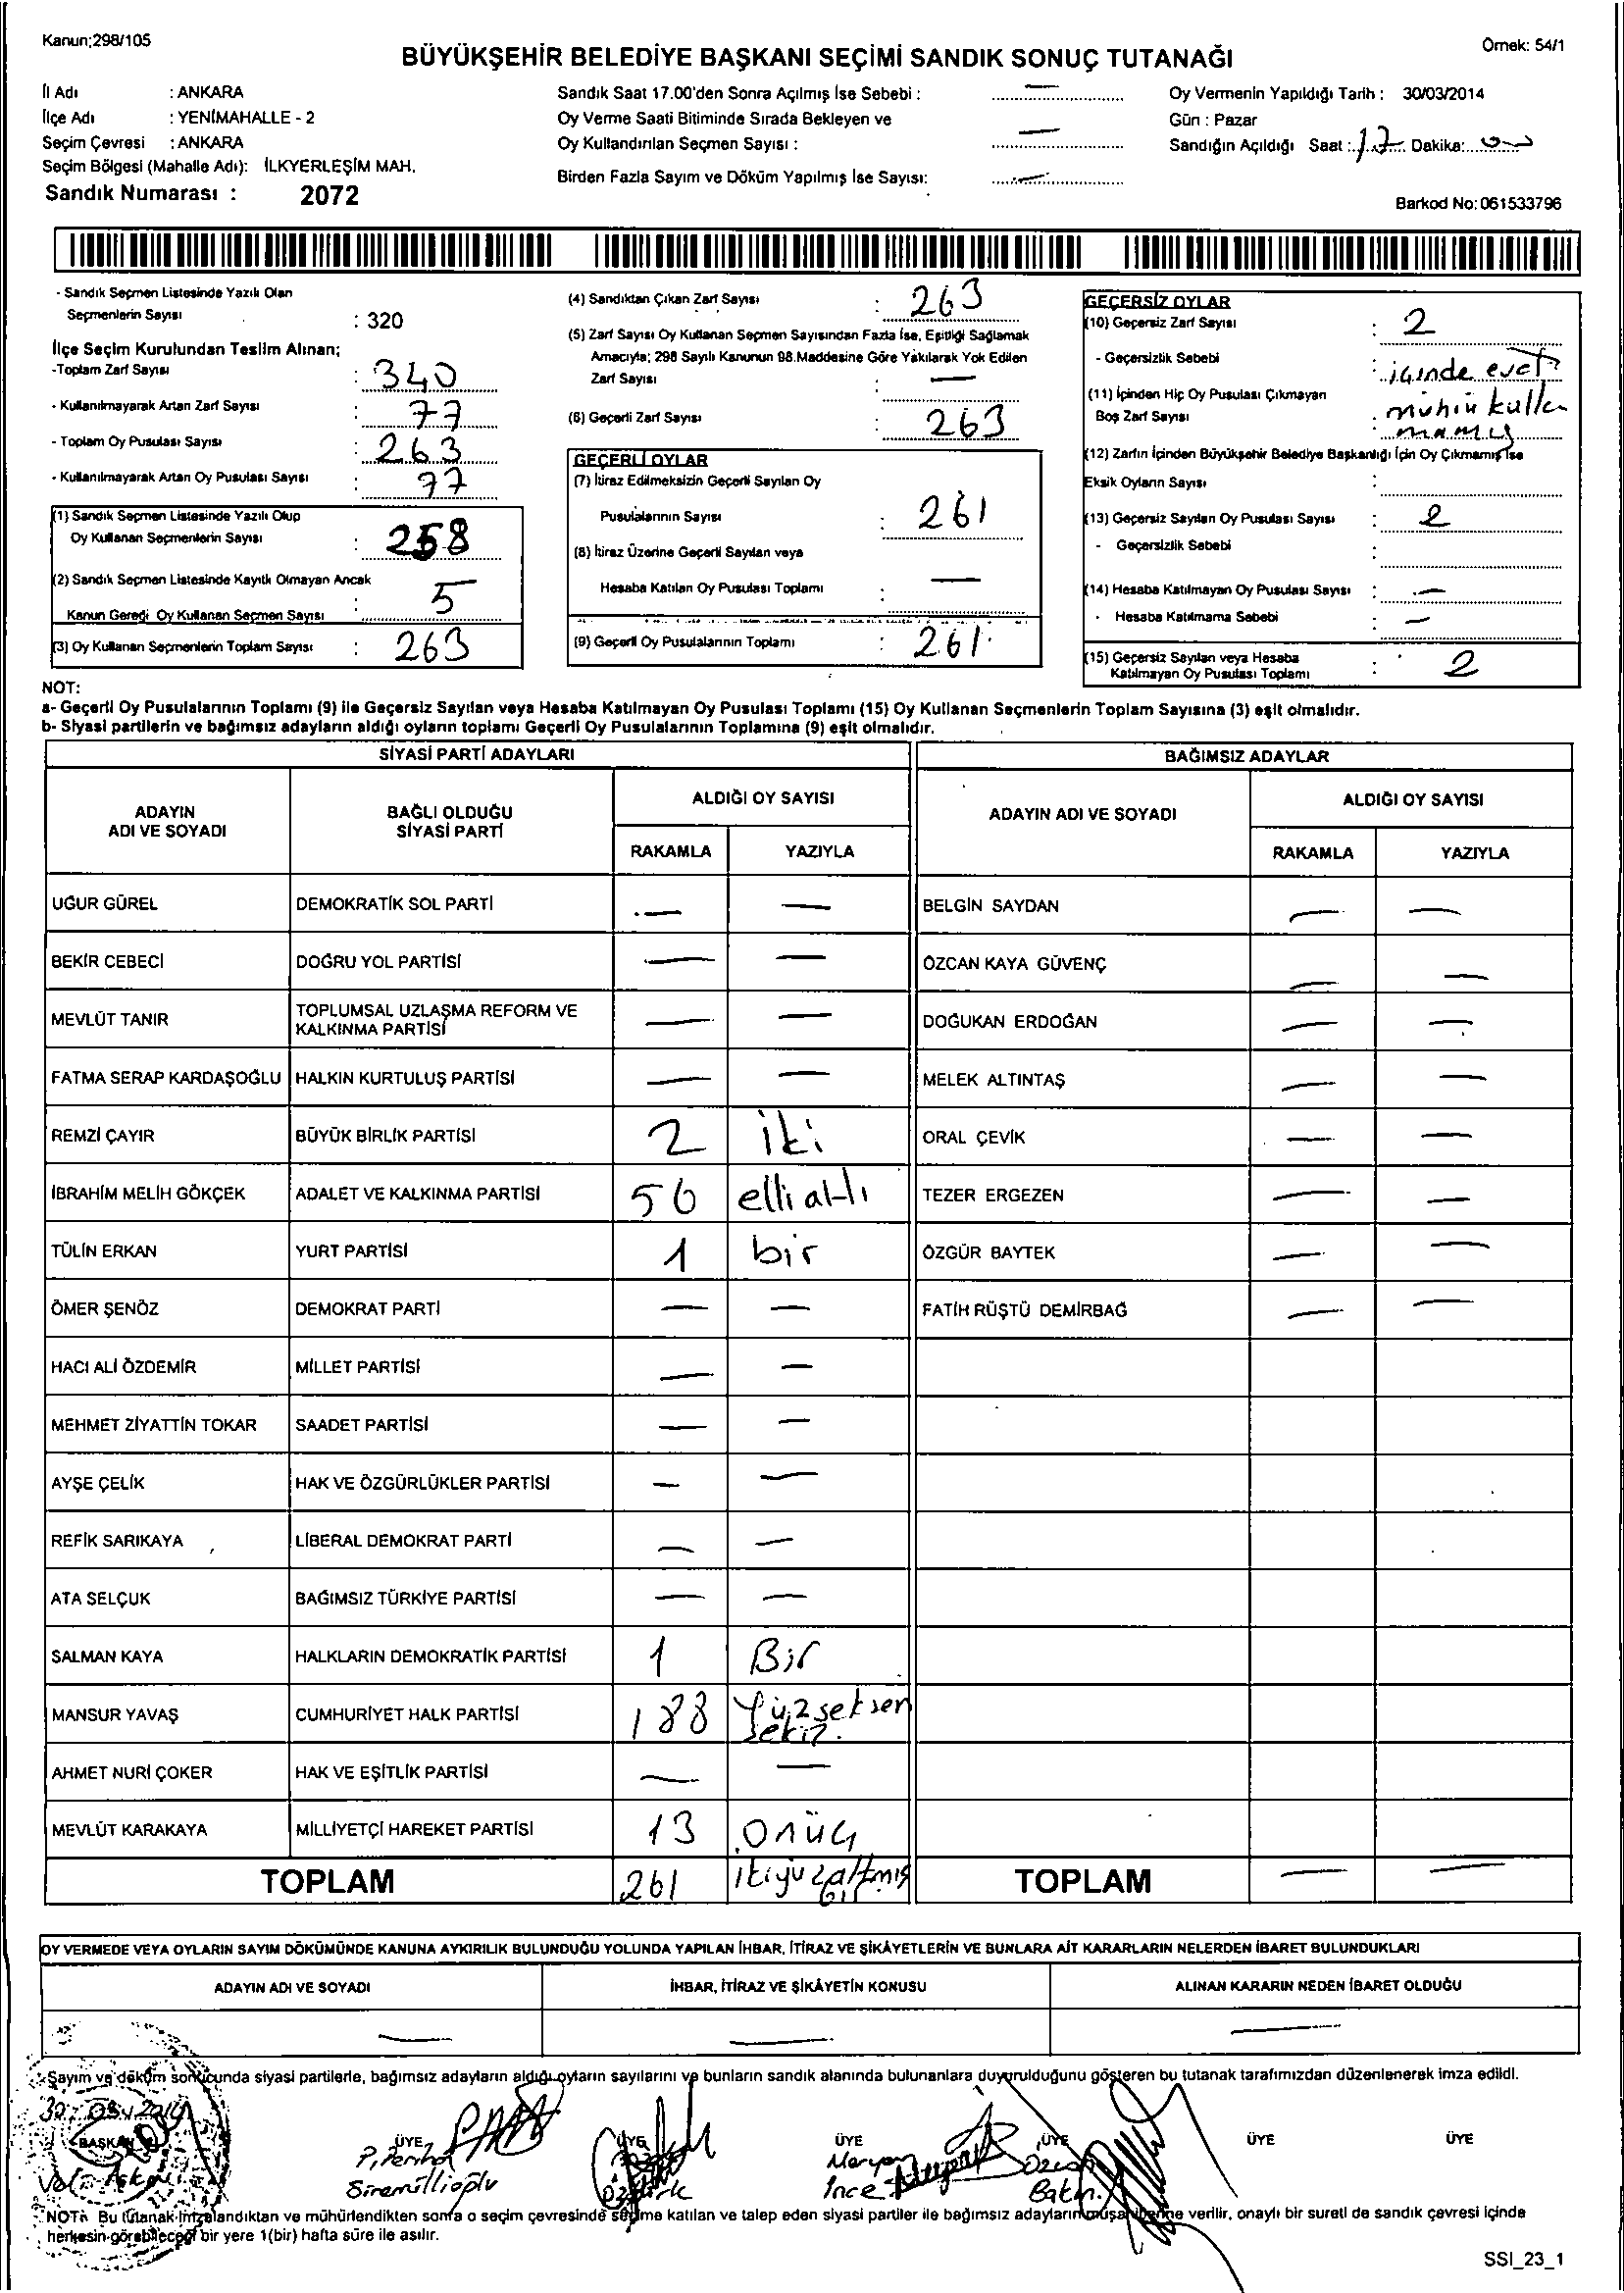 Kanun;298/105
Örnek: 54/1
BÜYÜKŞEHİR BELEDİYE BAŞKANI SEÇİMİ SANDIK SONUÇ TUTANAĞI
İl Adı : ANKARA
İlçe Adı : YENİMAHALLE - 2
Seçim Çevresi : ANKARA
Seçim Bölgesi (Mahalle Adı): İLKYERLEŞİM MAH.
Sandık Numarası : 2072
Sandık Saat 17.00'den Sonra Açılmış İse Sebebi : —
Oy Verme Saati Bitiminde Sırada Bekleyen ve
Oy Kullandırılan Seçmen Sayısı : —
Birden Fazla Sayım ve Döküm Yapılmış İse Sayısı: —
Oy Vermenin Yapıldığı Tarih : 30/03/2014
Gün : Pazar
Sandığın Açıldığı Saat : 17 Dakika:
Barkod No: 061533796
- Sandık Seçmen Listesinde Yazılı Olan
Seçmenlerin Sayısı : 320
İlçe Seçim Kurulundan Teslim Alınan;
-Toplam Zarf Sayısı : 340
- Kullanılmayarak Artan Zarf Sayısı : 77
- Toplam Oy Pusulası Sayısı : 263
- Kullanılmayarak Artan Oy Pusulası Sayısı : 77
(1) Sandık Seçmen Listesinde Yazılı Olup
Oy Kullanan Seçmenlerin Sayısı : 258
(2) Sandık Seçmen Listesinde Kayıtlı Olmayan Ancak
Kanun Gereği Oy Kullanan Seçmen Sayısı : 5
(3) Oy Kullanan Seçmenlerin Toplam Sayısı : 263
(4) Sandıktan Çıkan Zarf Sayısı : 263
(5) Zarf Sayısı Oy Kullanan Seçmen Sayısından Fazla İse, Eşitliği Sağlamak
Amacıyla; 298 Sayılı Kanunun 98.Maddesine Göre Yakılarak Yok Edilen
Zarf Sayısı : —
(6) Geçerli Zarf Sayısı : 263
GEÇERLİ OYLAR
(7) İtiraz Edilmeksizin Geçerli Sayılan Oy
Pusulalarının Sayısı : 261
(8) İtiraz Üzerine Geçerli Sayılan veya
Hesaba Katılan Oy Pusulası Toplamı : —
(9) Geçerli Oy Pusulalarının Toplamı : 261
GEÇERSİZ OYLAR
(10) Geçersiz Zarf Sayısı : 2
- Geçersizlik Sebebi : içinde evet
(11) İçinden Hiç Oy Pusulası Çıkmayan
Boş Zarf Sayısı : mühür kullan
mamış
(12) Zarfın İçinden Büyükşehir Belediye Başkanlığı İçin Oy Çıkmamış İse
Eksik Oyların Sayısı :
(13) Geçersiz Sayılan Oy Pusulası Sayısı : 2
- Geçersizlik Sebebi :
(14) Hesaba Katılmayan Oy Pusulası Sayısı : —
- Hesaba Katılmama Sebebi : —
(15) Geçersiz Sayılan veya Hesaba
Katılmayan Oy Pusulası Toplamı : 2
NOT:
a- Geçerli Oy Pusulalarının Toplamı (9) ile Geçersiz Sayılan veya Hesaba Katılmayan Oy Pusulası Toplamı (15) Oy Kullanan Seçmenlerin Toplam Sayısına (3) eşit olmalıdır.
b- Siyasi partilerin ve bağımsız adayların aldığı oyların toplamı Geçerli Oy Pusulalarının Toplamına (9) eşit olmalıdır.
SİYASİ PARTİ ADAYLARI
BAĞIMSIZ ADAYLAR
ADAYIN ADI VE SOYADI
BAĞLI OLDUĞU SİYASİ PARTİ
ALDIĞI OY SAYISI
RAKAMLA YAZIYLA
ADAYIN ADI VE SOYADI
ALDIĞI OY SAYISI
RAKAMLA YAZIYLA
UĞUR GÜREL DEMOKRATİK SOL PARTİ — — BELGİN SAYDAN — —
BEKİR CEBECİ DOĞRU YOL PARTİSİ — — ÖZCAN KAYA GÜVENÇ — —
MEVLÜT TANIR TOPLUMSAL UZLAŞMA REFORM VE KALKINMA PARTİSİ — — DOĞUKAN ERDOĞAN — —
FATMA SERAP KARDAŞOĞLU HALKIN KURTULUŞ PARTİSİ — — MELEK ALTINTAŞ — —
REMZİ ÇAYIR BÜYÜK BİRLİK PARTİSİ 2 iki ORAL ÇEVİK — —
İBRAHİM MELİH GÖKÇEK ADALET VE KALKINMA PARTİSİ 56 elli altı TEZER ERGEZEN — —
TÜLİN ERKAN YURT PARTİSİ 1 bir ÖZGÜR BAYTEK — —
ÖMER ŞENÖZ DEMOKRAT PARTİ — — FATİH RÜŞTÜ DEMİRBAĞ — —
HACI ALİ ÖZDEMİR MİLLET PARTİSİ — —
MEHMET ZİYATTİN TOKAR SAADET PARTİSİ — —
AYŞE ÇELİK HAK VE ÖZGÜRLÜKLER PARTİSİ — —
REFİK SARIKAYA LİBERAL DEMOKRAT PARTİ — —
ATA SELÇUK BAĞIMSIZ TÜRKİYE PARTİSİ — —
SALMAN KAYA HALKLARIN DEMOKRATİK PARTİSİ 1 Bir
MANSUR YAVAŞ CUMHURİYET HALK PARTİSİ 188 Yüzseksen sekiz.
AHMET NURİ ÇOKER HAK VE EŞİTLİK PARTİSİ — —
MEVLÜT KARAKAYA MİLLİYETÇİ HAREKET PARTİSİ 13 onüç
TOPLAM 261 ikiyüzaltmış bir TOPLAM — —
OY VERMEDE VEYA OYLARIN SAYIM DÖKÜMÜNDE KANUNA AYKIRILIK BULUNDUĞU YOLUNDA YAPILAN İHBAR, İTİRAZ VE ŞİKÂYETLERİN VE BUNLARA AİT KARARLARIN NELERDEN İBARET BULUNDUKLARI
ADAYIN ADI VE SOYADI İHBAR, İTİRAZ VE ŞİKÂYETİN KONUSU ALINAN KARARIN NEDEN İBARET OLDUĞU
— — —
Sayım ve döküm sonucunda siyasi partilerle, bağımsız adayların aldığı oyların sayılarını ve bunların sandık alanında bulunanlara duyurulduğunu gösteren bu tutanak tarafımızdan düzenlenerek imza edildi.
30/03/2014
BAŞKAN ÜYE ÜYE ÜYE ÜYE ÜYE ÜYE
P. Perihan Meryem
Öztürk İnce
NOT: Bu tutanak imzalandıktan ve mühürlendikten sonra o seçim çevresinde seçime katılan ve talep eden siyasi partiler ile bağımsız adayların müşahitlerine verilir, onaylı bir sureti de sandık çevresi içinde
herkesin görebileceği bir yere 1(bir) hafta süre ile asılır.
SSI_23_1